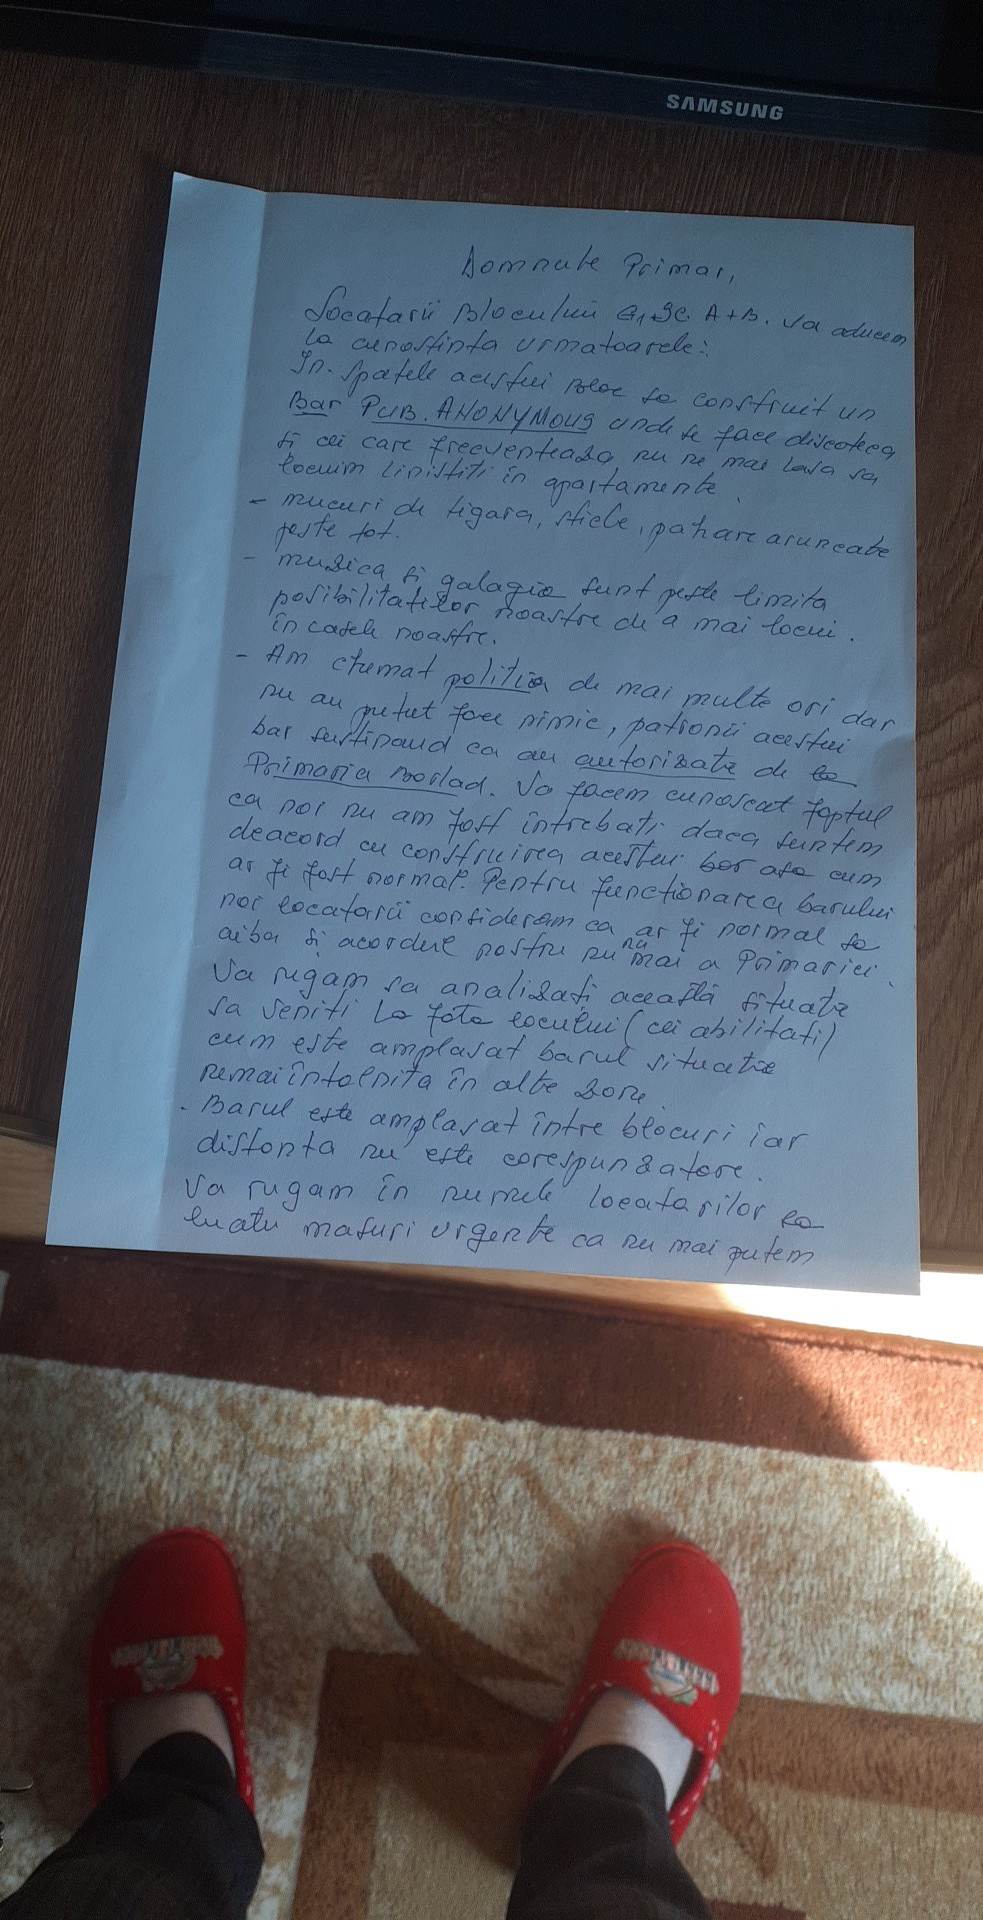 SAMSUNG
Domnule Primar,
Locatarii Blocului G1 Sc. A+B. va aducem
la cunostinta urmatoarele:
In. spatele acestui Bloc sa construit un
Bar PUB. ANONYMOUS unde se face discoteca
si cei care frecventeaza nu ne mai lasa sa
locuim linistiti în apartamente.
- mucuri de tigara, sticle, pahare aruncate
peste tot.
- muzica si galagia sunt peste limita
posibilitatilor noastre de a mai locui.
în casele noastre.
- Am chemat politia de mai multe ori dar
nu au putut face nimic, patronii acestui
bar sustinand ca au autorizatie de la
Primaria Barlad. Va facem cunoscut faptul
ca noi nu am fost întrebati daca suntem
deacord cu construirea acestui bar asa cum
ar fi fost normal. Pentru functionarea barului
noi locatarii consideram ca ar fi normal sa
aiba si acordul nostru nu numai a Primariei.
Va rugam sa analizati această situatie
sa veniti la fata locului (cei abilitati)
cum este amplasat barul situatie
nemaiîntalnita în alte zone.
- Barul este amplasat între blocuri iar
distanta nu este corespunzatoare.
Va rugam în numele locatarilor sa
luati masuri urgente ca nu mai putem